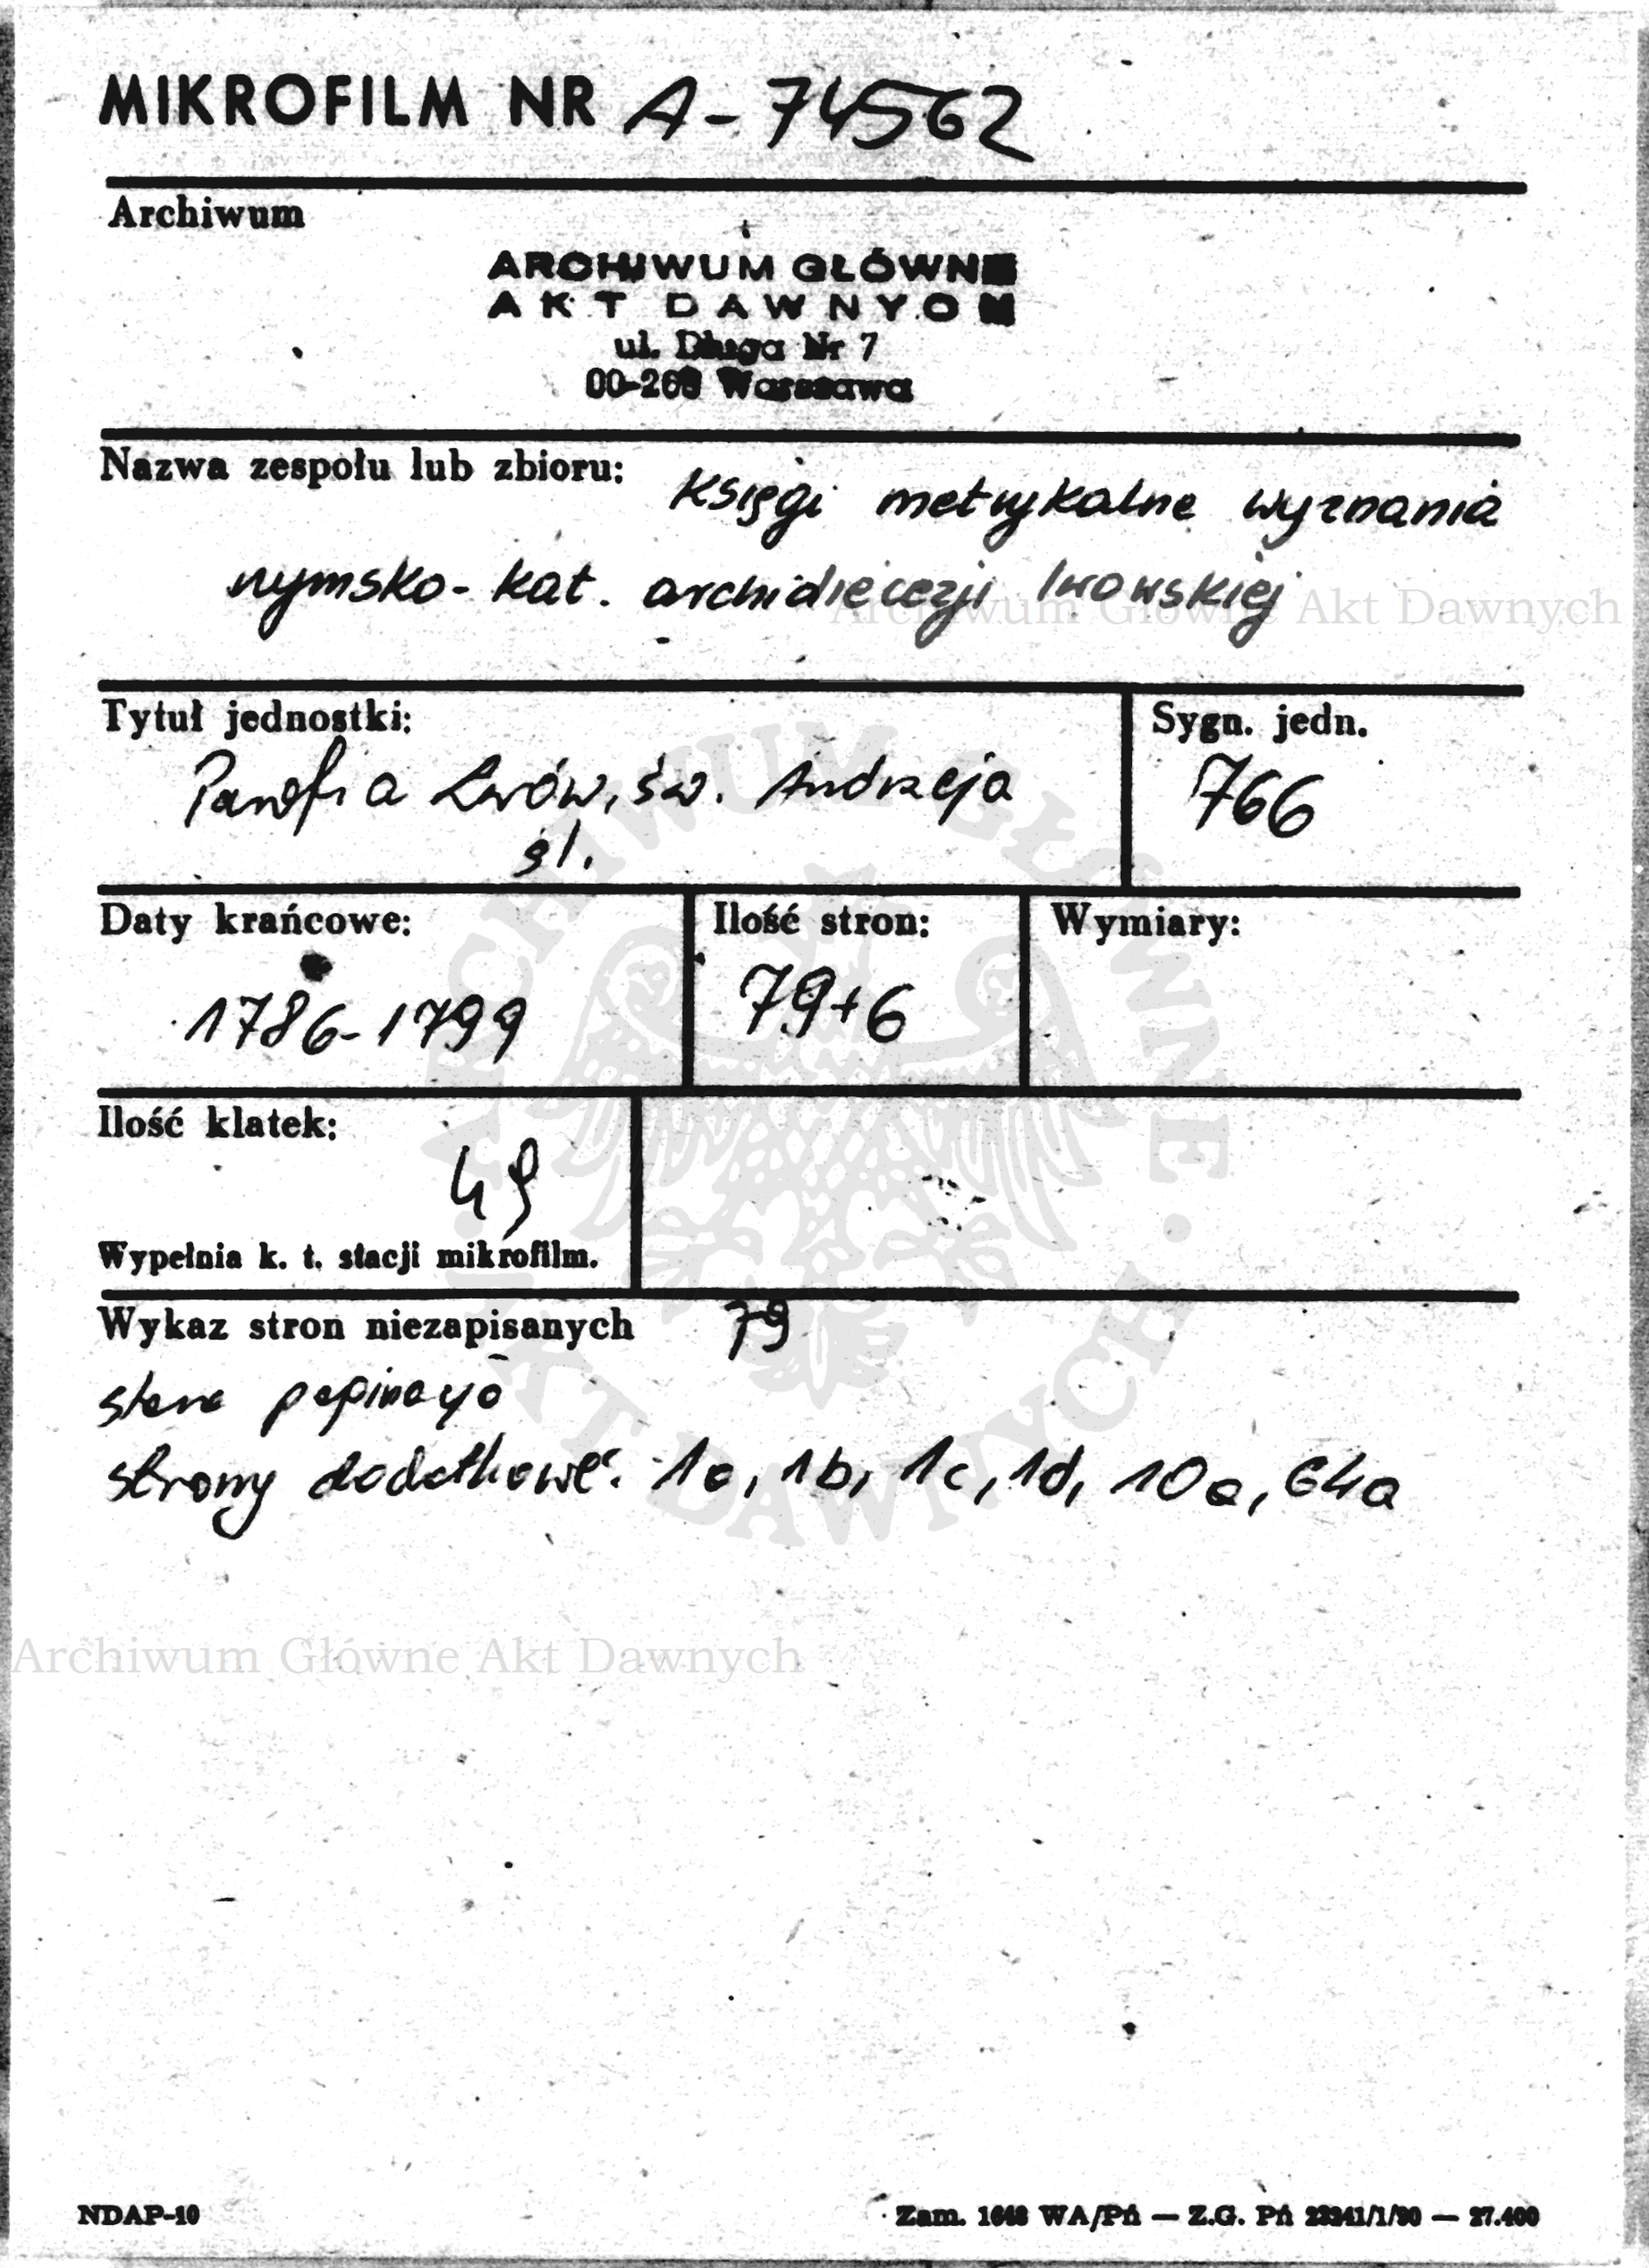 MIKROFILM NR A-74562
Archiwum
ARCHIWUM GŁÓWNE
AKT DAWNYCH
ul. Długa Nr 7
00-263 Warszawa
Nazwa zespołu lub zbioru: Księgi metrykalne wyznania
rzymsko-kat. archidiecezji lwowskiej
Archiwum Główne Akt Dawnych
Tytuł jednostki:
Sygn. jedn.
Parafia Lwów, św. Andrzeja
766
Daty krańcowe:
Ilość stron:
Wymiary:
1786-1799
79+6
Ilość klatek:
49
Wypełnia k. t. stacji mikrofilm.
Wykaz stron niezapisanych 79
stara paginacja
strony dodatkowe: 1a, 1b, 1c, 1d, 10a, 64a
ARCHIWUM GŁÓWNE · AKT DAWNYCH ·
Archiwum Główne Akt Dawnych
NDAP-10
Zam. WA/Pń — Z.G. Pń — 27.400